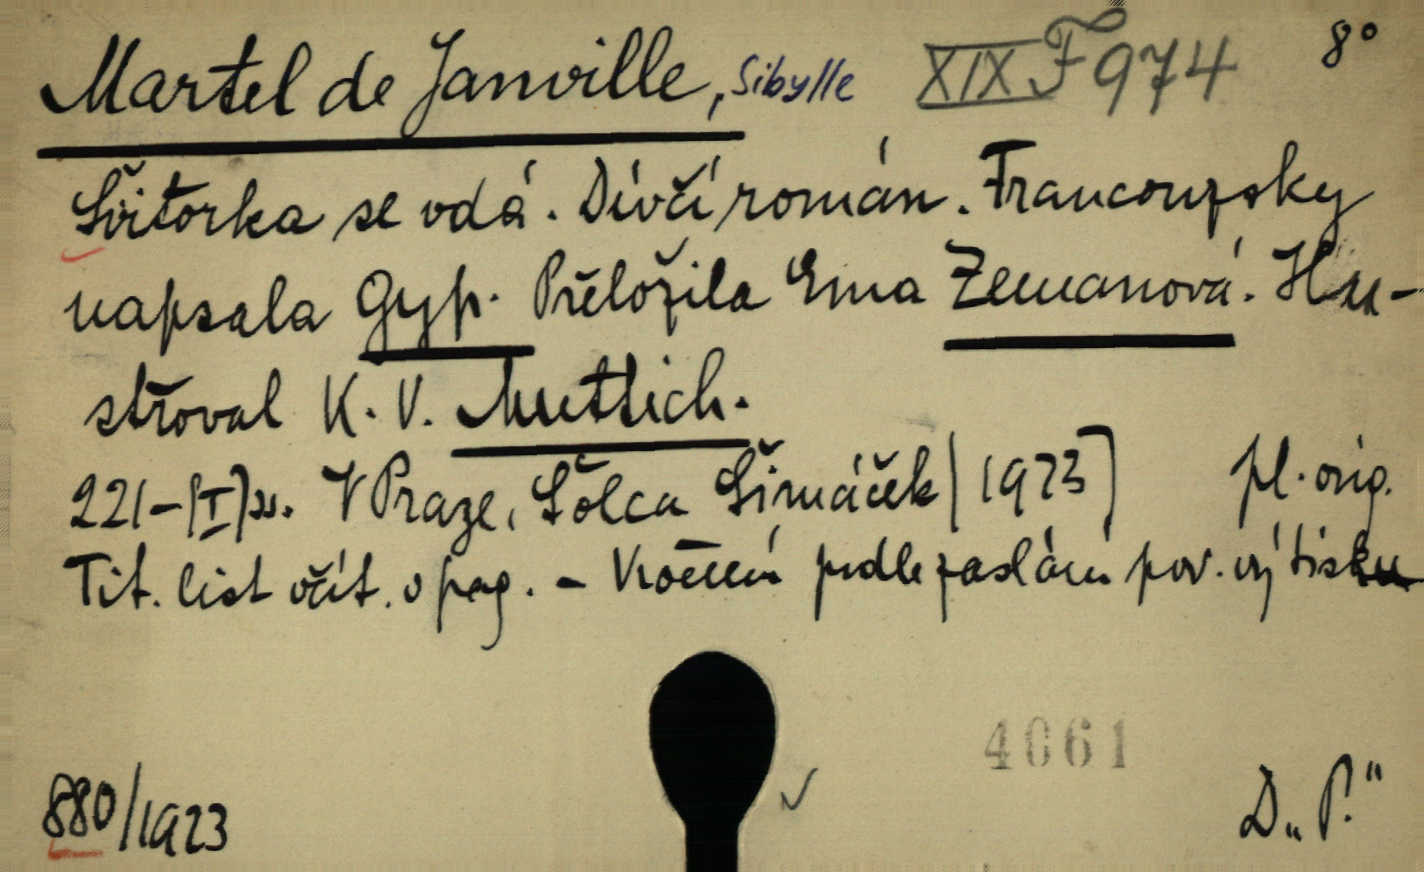 Martel de Janville, Sibylle XIX F 974 8°
Švitorka se vdá. Dívčí román. Francouzsky
napsala Gyp. Přeložila Ema Zemanová. Illu-
stroval K. V. Muttich.
221-[I] s. V Praze, Šolc a Šimáček [1923] pl. orig.
Tit. list včít. v pag. - Vročení podle zaslání pov. výtisku
4061
880/1923 D „P."